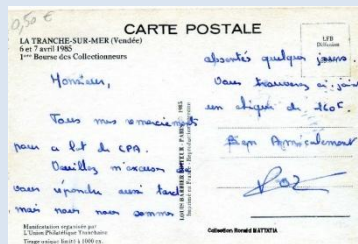 0,50 €
CARTE POSTALE
LA TRANCHE-SUR-MER (Vendée)
6 et 7 avril 1985
1ère Bourse des Collectionneurs
Monsieur,
Tous mes remerciements
pour ce lot de CPA.
Veuillez m'excuser
vous répondre aussi tard
mais nous nous sommes
Manifestation organisée par
L'Union Philatélique
Tirage unique limité à 1000 ex.
LFB
Diffusion
absentés quelques jours.
Vous trouverez ci-joint
un chèque de 160F.
Bien Amicalement
Collection Ronald MATTATIA